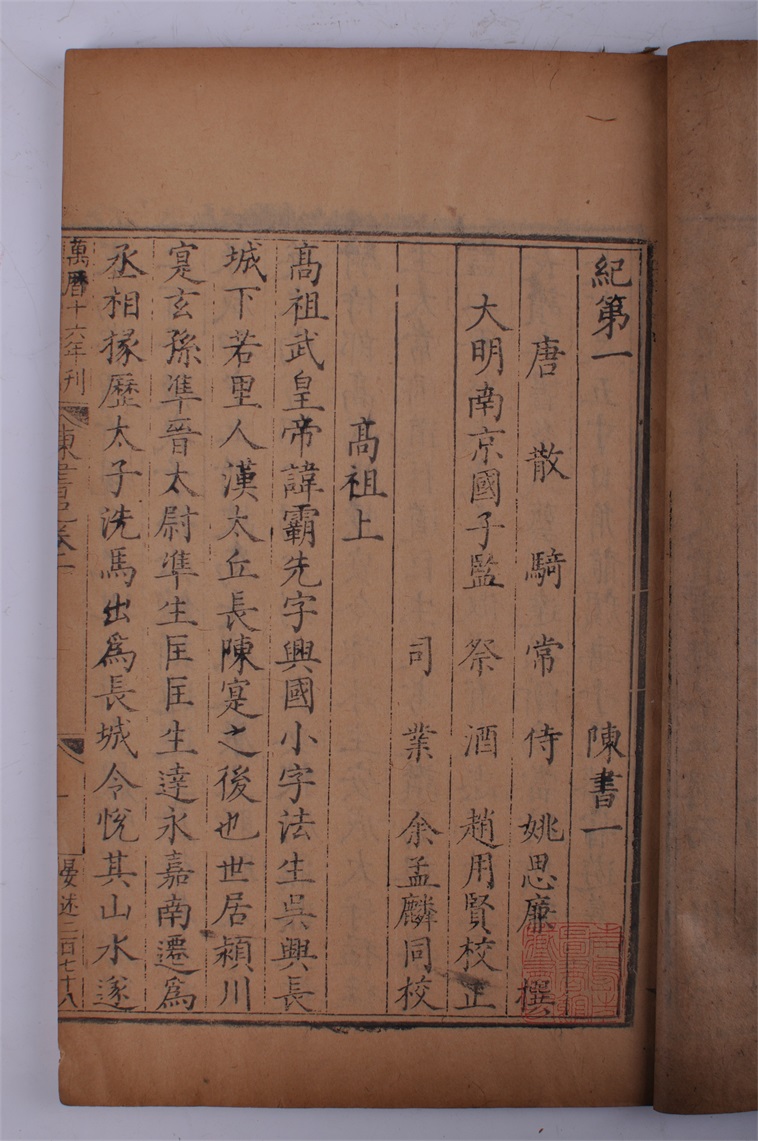 紀第一 陳書一
唐 散 騎 常 侍 姚思廉 撰
大明南京國子監 祭 酒 趙用賢校正
司 業 余孟麟同校
高祖上
高祖武皇帝諱霸先字興國小字法生吳興長
城下若里人漢太丘長陳寔之後也世居潁川
寔玄孫準晉太尉準生匡匡生達永嘉南遷爲
丞相掾歷太子洗馬出爲長城令悅其山水遂
萬曆十六年刊
陳書紀卷一
一
晏述二百七十八